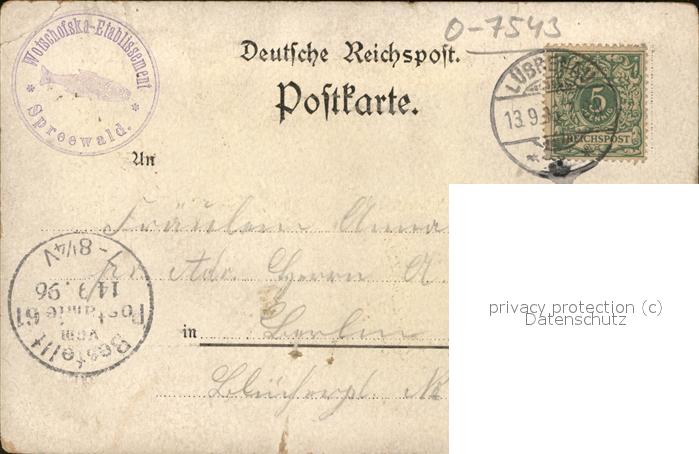 Wotschofska-Etablissement
* Spreewald. *
0-7543
Deutsche Reichspost.
Postkarte.
LÜBBENAU
13.9.9
5
PFENNIG
REICHSPOST
An
Fräulein Anna
Adr. Herrn A.
in Berlin
Bestellt
vom
Postamte 61
14.9.96
- 8¼V
privacy protection (c)
Datenschutz